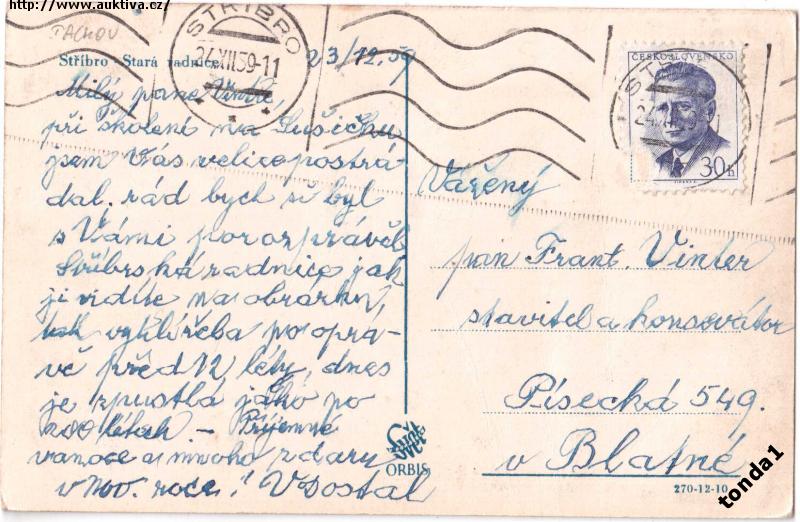 http://www.auktiva.cz/
TACHOV
STŘÍBRO
24.XII.59-11
Stříbro - Stará radnice
23/12.59
Milý pane Vintre,
při školení na Sušicku
jsem Vás velice postrá-
dal. rád bych si byl
s Vámi porozprávěl.
Stříbrská radnice jak
ji vidíte na obrázku,
vyhlížela po opra-
vě před 12 léty, dnes
je zpustlá jako po
200 létech. - Příjemné
vanoce a mnoho zdaru
v nov. roce! VDostal
ORBIS
ČESKOSLOVENSKO
30h
Vážený
pan Frant. Vinter
stavitel a konservátor
Písecká 549.
v Blatné
270-12-10
tonda1